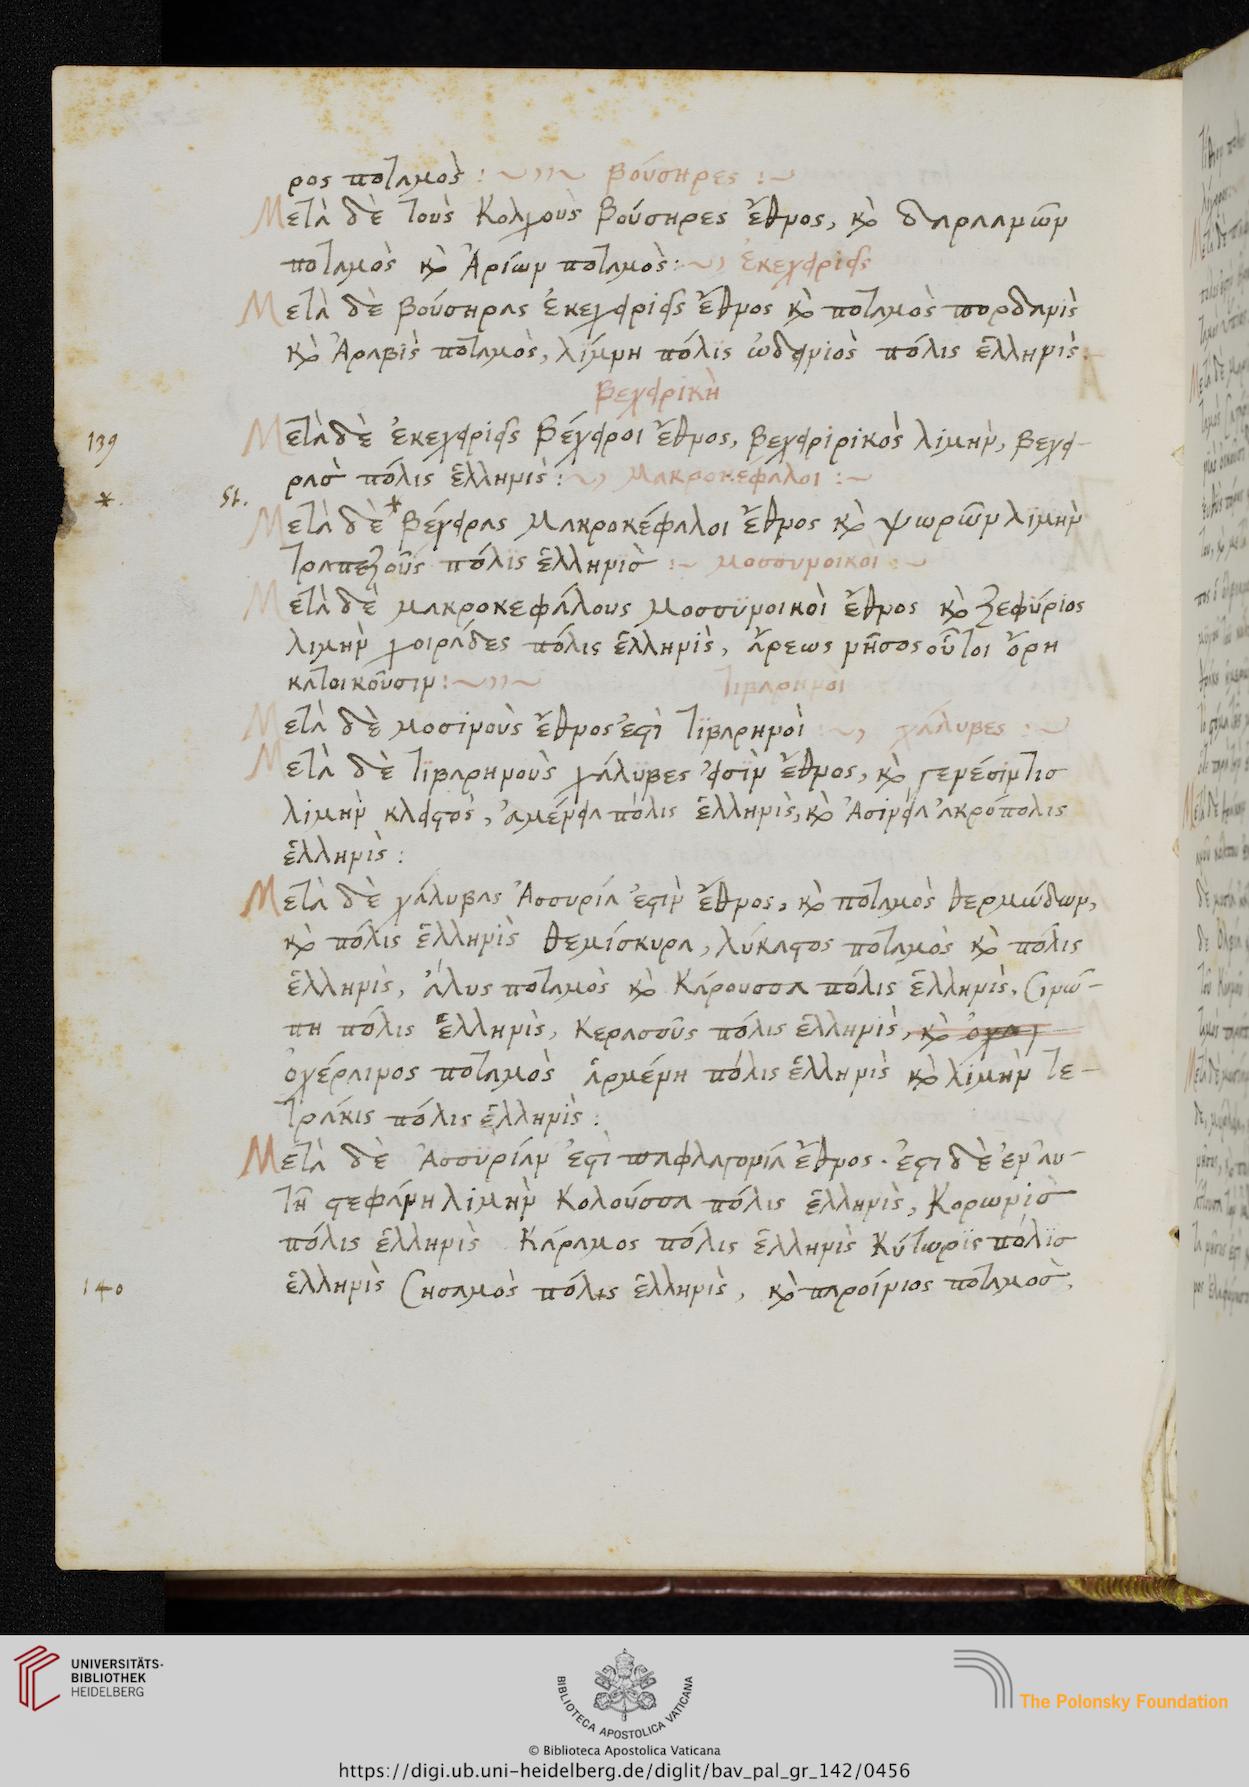 ρος ποταμὸς : ~ Βούσηρες :~
Μετὰ δὲ τοὺς Κολχοὺς Βούσηρες ἔθνος, κὶ δαρανῶν
ποταμὸς κὶ Ἀρίων ποταμὸς: ~ ἐκεχειρεῖς
Μετὰ δὲ βούσηρας ἐκεχειρεῖς ἔθνος κὶ ποταμὸς πορδανὶς
κὶ Ἀραβὶς ποταμὸς, λίμνη πόλις ὠδεινιὸς πόλις ἑλληνὶς.
Βεχειρικὴ
139
Μετὰ δὲ ἐκεχειρεῖς Βέχειροι ἔθνος, βεχειρικὸς λιμὴν, βεχει-
ρὰς πόλις ἑλληνὶς: ~ Μακροκέφαλοι :~
*. St.
Μετὰ δὲ* Βέχειρας Μακροκέφαλοι ἔθνος κὶ ψωρῶν λιμὴν
τραπεζοῦς πόλις ἑλληνὶς :~ μοσσυνοικοι :~
Μετὰ δὲ μακροκεφάλους Μοσσυνοικοὶ ἔθνος κὶ Ζεφύριος
λιμὴν χοιράδες πόλις ἑλληνὶς, ἄρεως νῆσος οὗτοι ὄρη
κατοικοῦσιν: ~ Τιβαρηνοι
Μετὰ δὲ μοσινοὺς ἔθνος ἐστὶ Τιβαρηνοὶ :~ χάλυβες :~
Μετὰ δὲ τιβαρηνοὺς χάλυβες εἰσὶν ἔθνος, κὶ γενέσιντις
λιμὴν κλειστὸς, ἀμένεια πόλις ἑλληνὶς, κὶ Ἀσινεία ἀκρόπολις
ἑλληνὶς :
Μετὰ δὲ χάλυβας Ἀσσυρία ἐστὶν ἔθνος, κὶ ποταμὸς θερμώδων,
κὶ πόλις ἑλληνὶς θεμίσκυρα, λύκαστος ποταμὸς κὶ πόλις
ἑλληνὶς, ἅλυς ποταμὸς κὶ Κάρουσσα πόλις ἑλληνὶς, Σινώ-
πη πόλις ἑλληνὶς, Κερασοῦς πόλις ἑλληνὶς, κὶ
ὀχέραινος ποταμὸς ἁρμένη πόλις ἑλληνὶς κὶ λιμὴν τε-
τράκις πόλις ἑλληνὶς :
Μετὰ δὲ Ἀσσυρίαν ἐστὶ παφλαγονία ἔθνος. ἔστι δὲ ἐν αὐ-
τῇ στεφάνη λιμὴν Κολούσσα πόλις ἑλληνὶς, Κορωνὶς
πόλις ἑλληνὶς Κάραμος πόλις ἑλληνὶς Κύτωρις πόλις
140
ἑλληνὶς Σησαμὸς πόλις ἑλληνὶς, κὶ παροίνιος ποταμὸς,
UNIVERSITÄTS-
BIBLIOTHEK
HEIDELBERG
BIBLIOTECA APOSTOLICA VATICANA
The Polonsky Foundation
© Biblioteca Apostolica Vaticana
https://digi.ub.uni-heidelberg.de/diglit/bav_pal_gr_142/0456